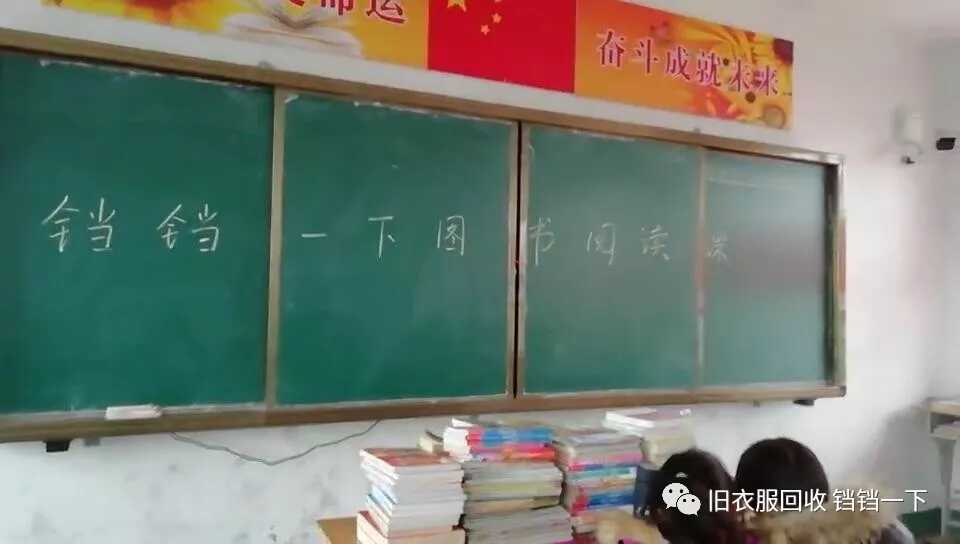 命运
奋斗成就未来
铛铛一下图书阅读课
旧衣服回收 铛铛一下